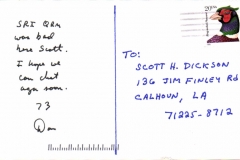 SRI QRM
was bad
here Scott.
I hope we
can chat
agn soon.
73
Dan
TO:
SCOTT H. DICKSON
136 JIM FINLEY Rd
CALHOUN, LA
71225-8712